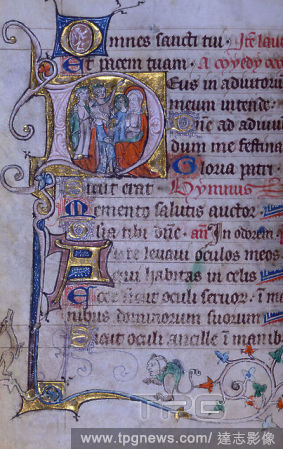 Omnes sancti tui. Ite lau
Et pacem tuam. A
Deus in adiutoriu
meum intende.
Dne ad adiuua
dum me festina
Gloria patri.
Sicut erat Hymnus
Memento salutis auctor.
tibi dne. an In odorem.
leuaui oculos meos
qui habitas in celis
Ecce sicut oculi seruor. i ma
nibus dominorum suorum
Sicut oculi ancille i manib
TPG
www.tpgnews.com / 達志影像